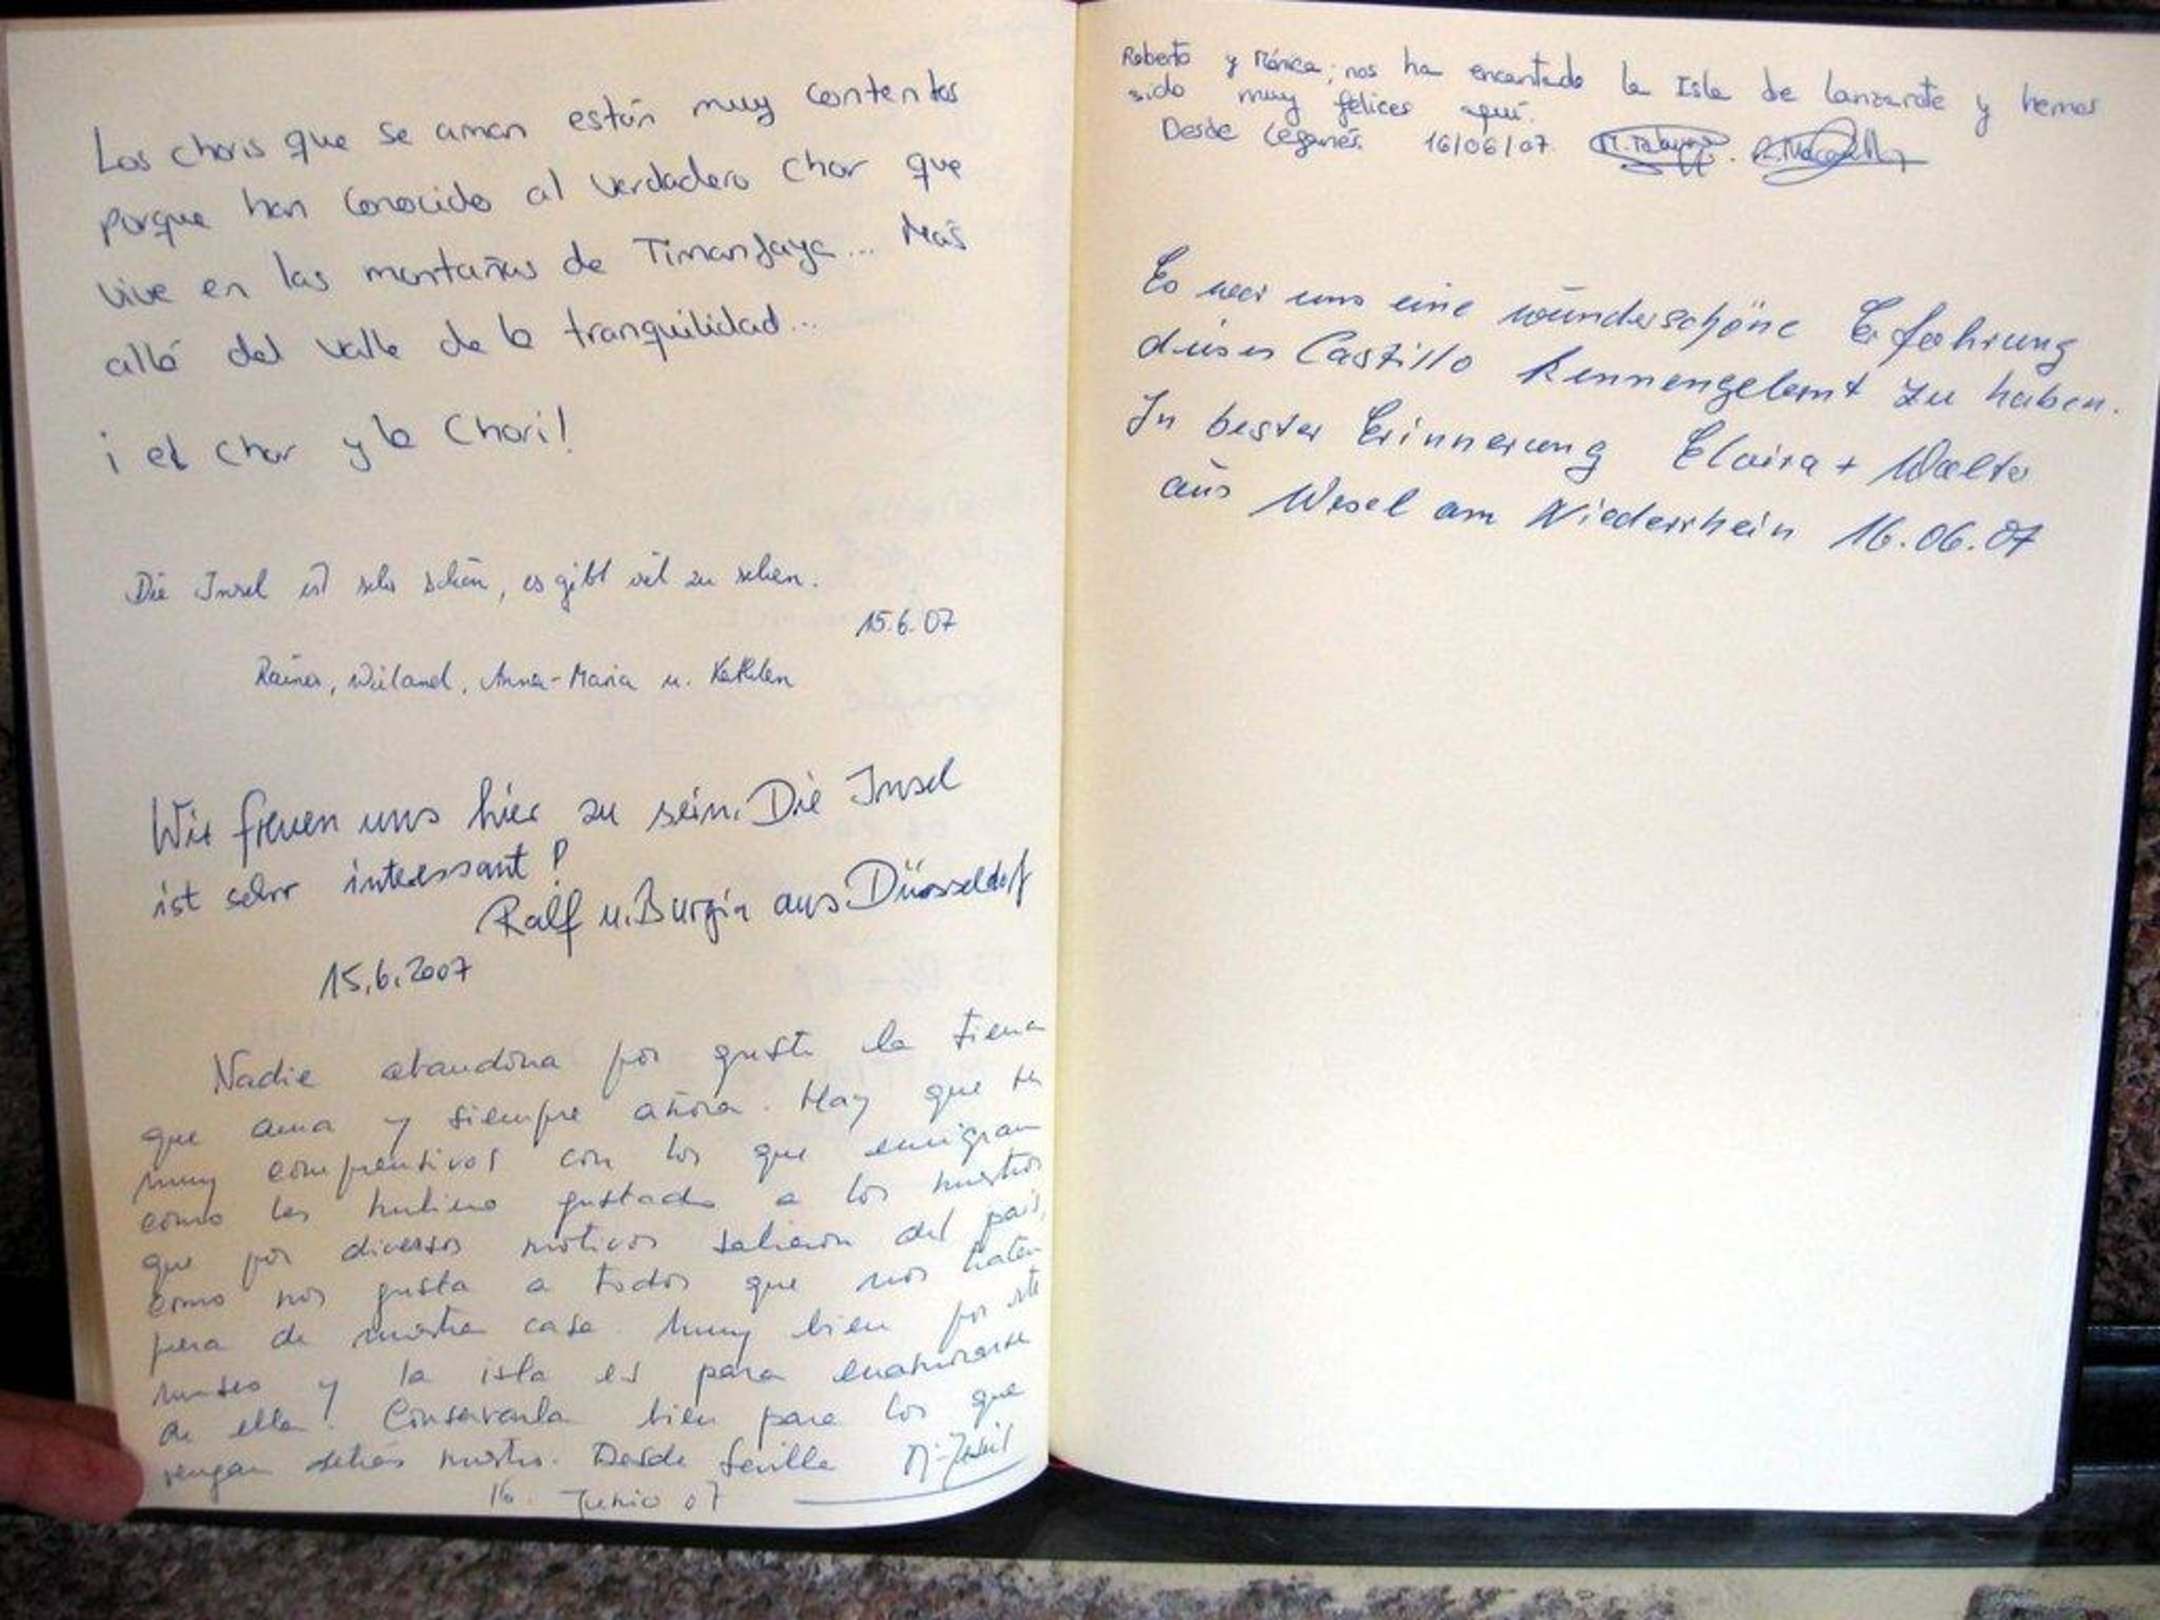 Los choris que se aman están muy contentos
porque han conocido al verdadero chor que
vive en las montañas de Timanfaya... Mas
allá del valle de la tranquilidad...
¡ el chor y la Chori!
Die Insel ist sehr schön, es gibt viel zu sehen.
15.6.07
Rainer, Wieland, Anna-Maria u. Kathlen
Wir freuen uns hier zu sein. Die Insel
ist sehr interessant!
Ralf u. Burgin aus Düsseldorf
15.6.2007
Nadie abandona por gusto la tierra
que ama y siempre añora. Hay que ser
muy comprensivos con los que emigran
como les hubiese gustado a los nuestros
que por diversos motivos salieron del país,
como nos gusta a todos que nos traten
fuera de nuestra casa. Muy bien por este
museo y la isla es para enamorarse
de ella. Conservarla bien para los que
vengan detrás nuestro. Desde Sevilla
16 Junio 07
Roberto y Mónica; nos ha encantado la Isla de Lanzarote y hemos
sido muy felices aquí.
Desde Leganés. 16/06/07.
Es war uns eine wunderschöne Erfahrung
dieses Castillo kennengelernt zu haben.
In bester Erinnerung + Walter
aus Wesel am Niederrhein 16.06.07